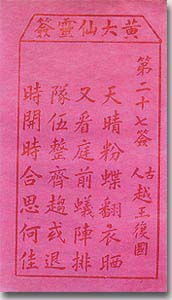 黃大仙靈簽
第二十七簽
古人 越王復國
天晴粉蝶翻衣晒
又看庭前蟻陣排
隊伍整齊趨或退
時開時合思何佳